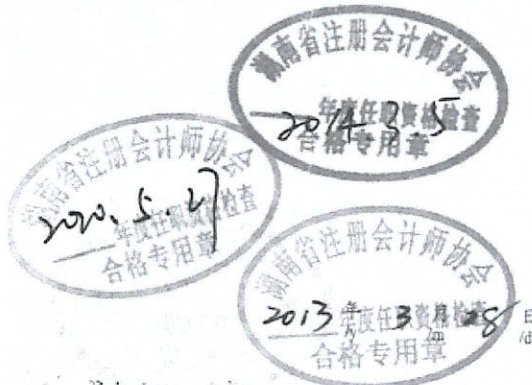 湖南省注册会计师协会
年度任职资格检查
2014.3.5
合格专用章
湖南省注册会计师协会
2020.5.27
年度任职资格检查
合格专用章
湖南省注册会计师协会
年度任职资格检查
2013年3月28日
合格专用章
/d